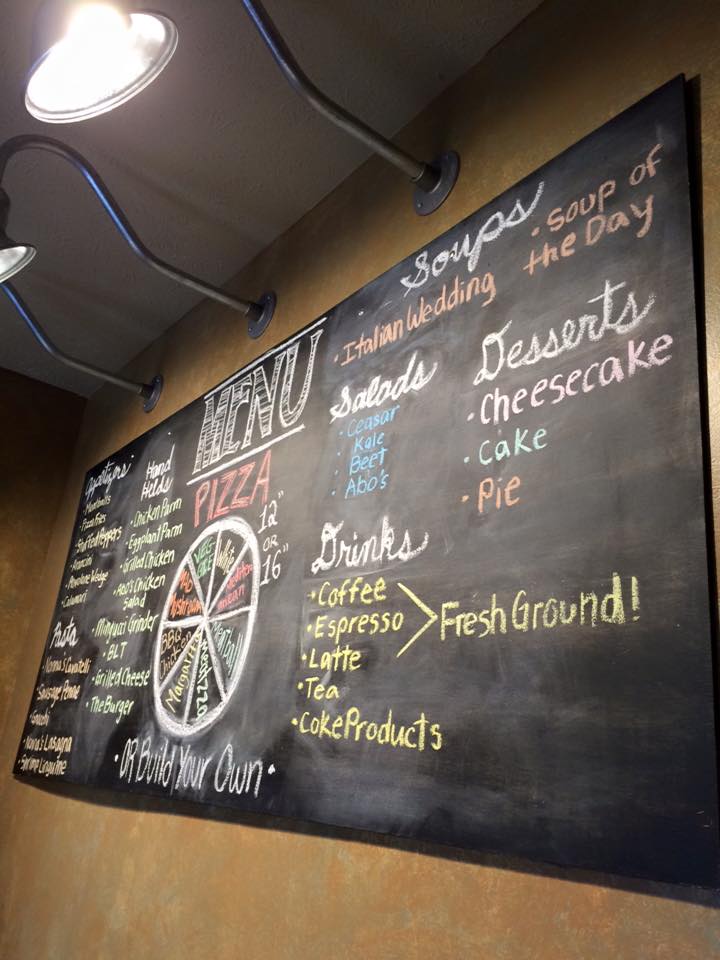 MENU
Appetizers
· Meatballs
· Pizza Fries
· Stuffed Peppers
· Arancini
· Calamari
Pasta
· Nonna's Cavatelli
· Sausage Penne
· Gnocchi
· Nonna's Lasagna
· Shrimp Linguine
Hand
Helds
· Chicken Parm
· Eggplant Parm
· Grilled Chicken
· Abo's Chicken
Salad
Grinder
· BLT
· Grilled Cheese
· The Burger
PIZZA
12"
OR
16"
White
BBQ
Chicken
Margarita
· OR Build Your Own ·
Soups
· Italian Wedding
· Soup of
the Day
Salads
· Ceasar
· Kale
· Beet
· Abo's
Desserts
· Cheesecake
· Cake
· Pie
Drinks
· Coffee
· Espresso
· Latte
Fresh Ground!
· Tea
· Coke Products